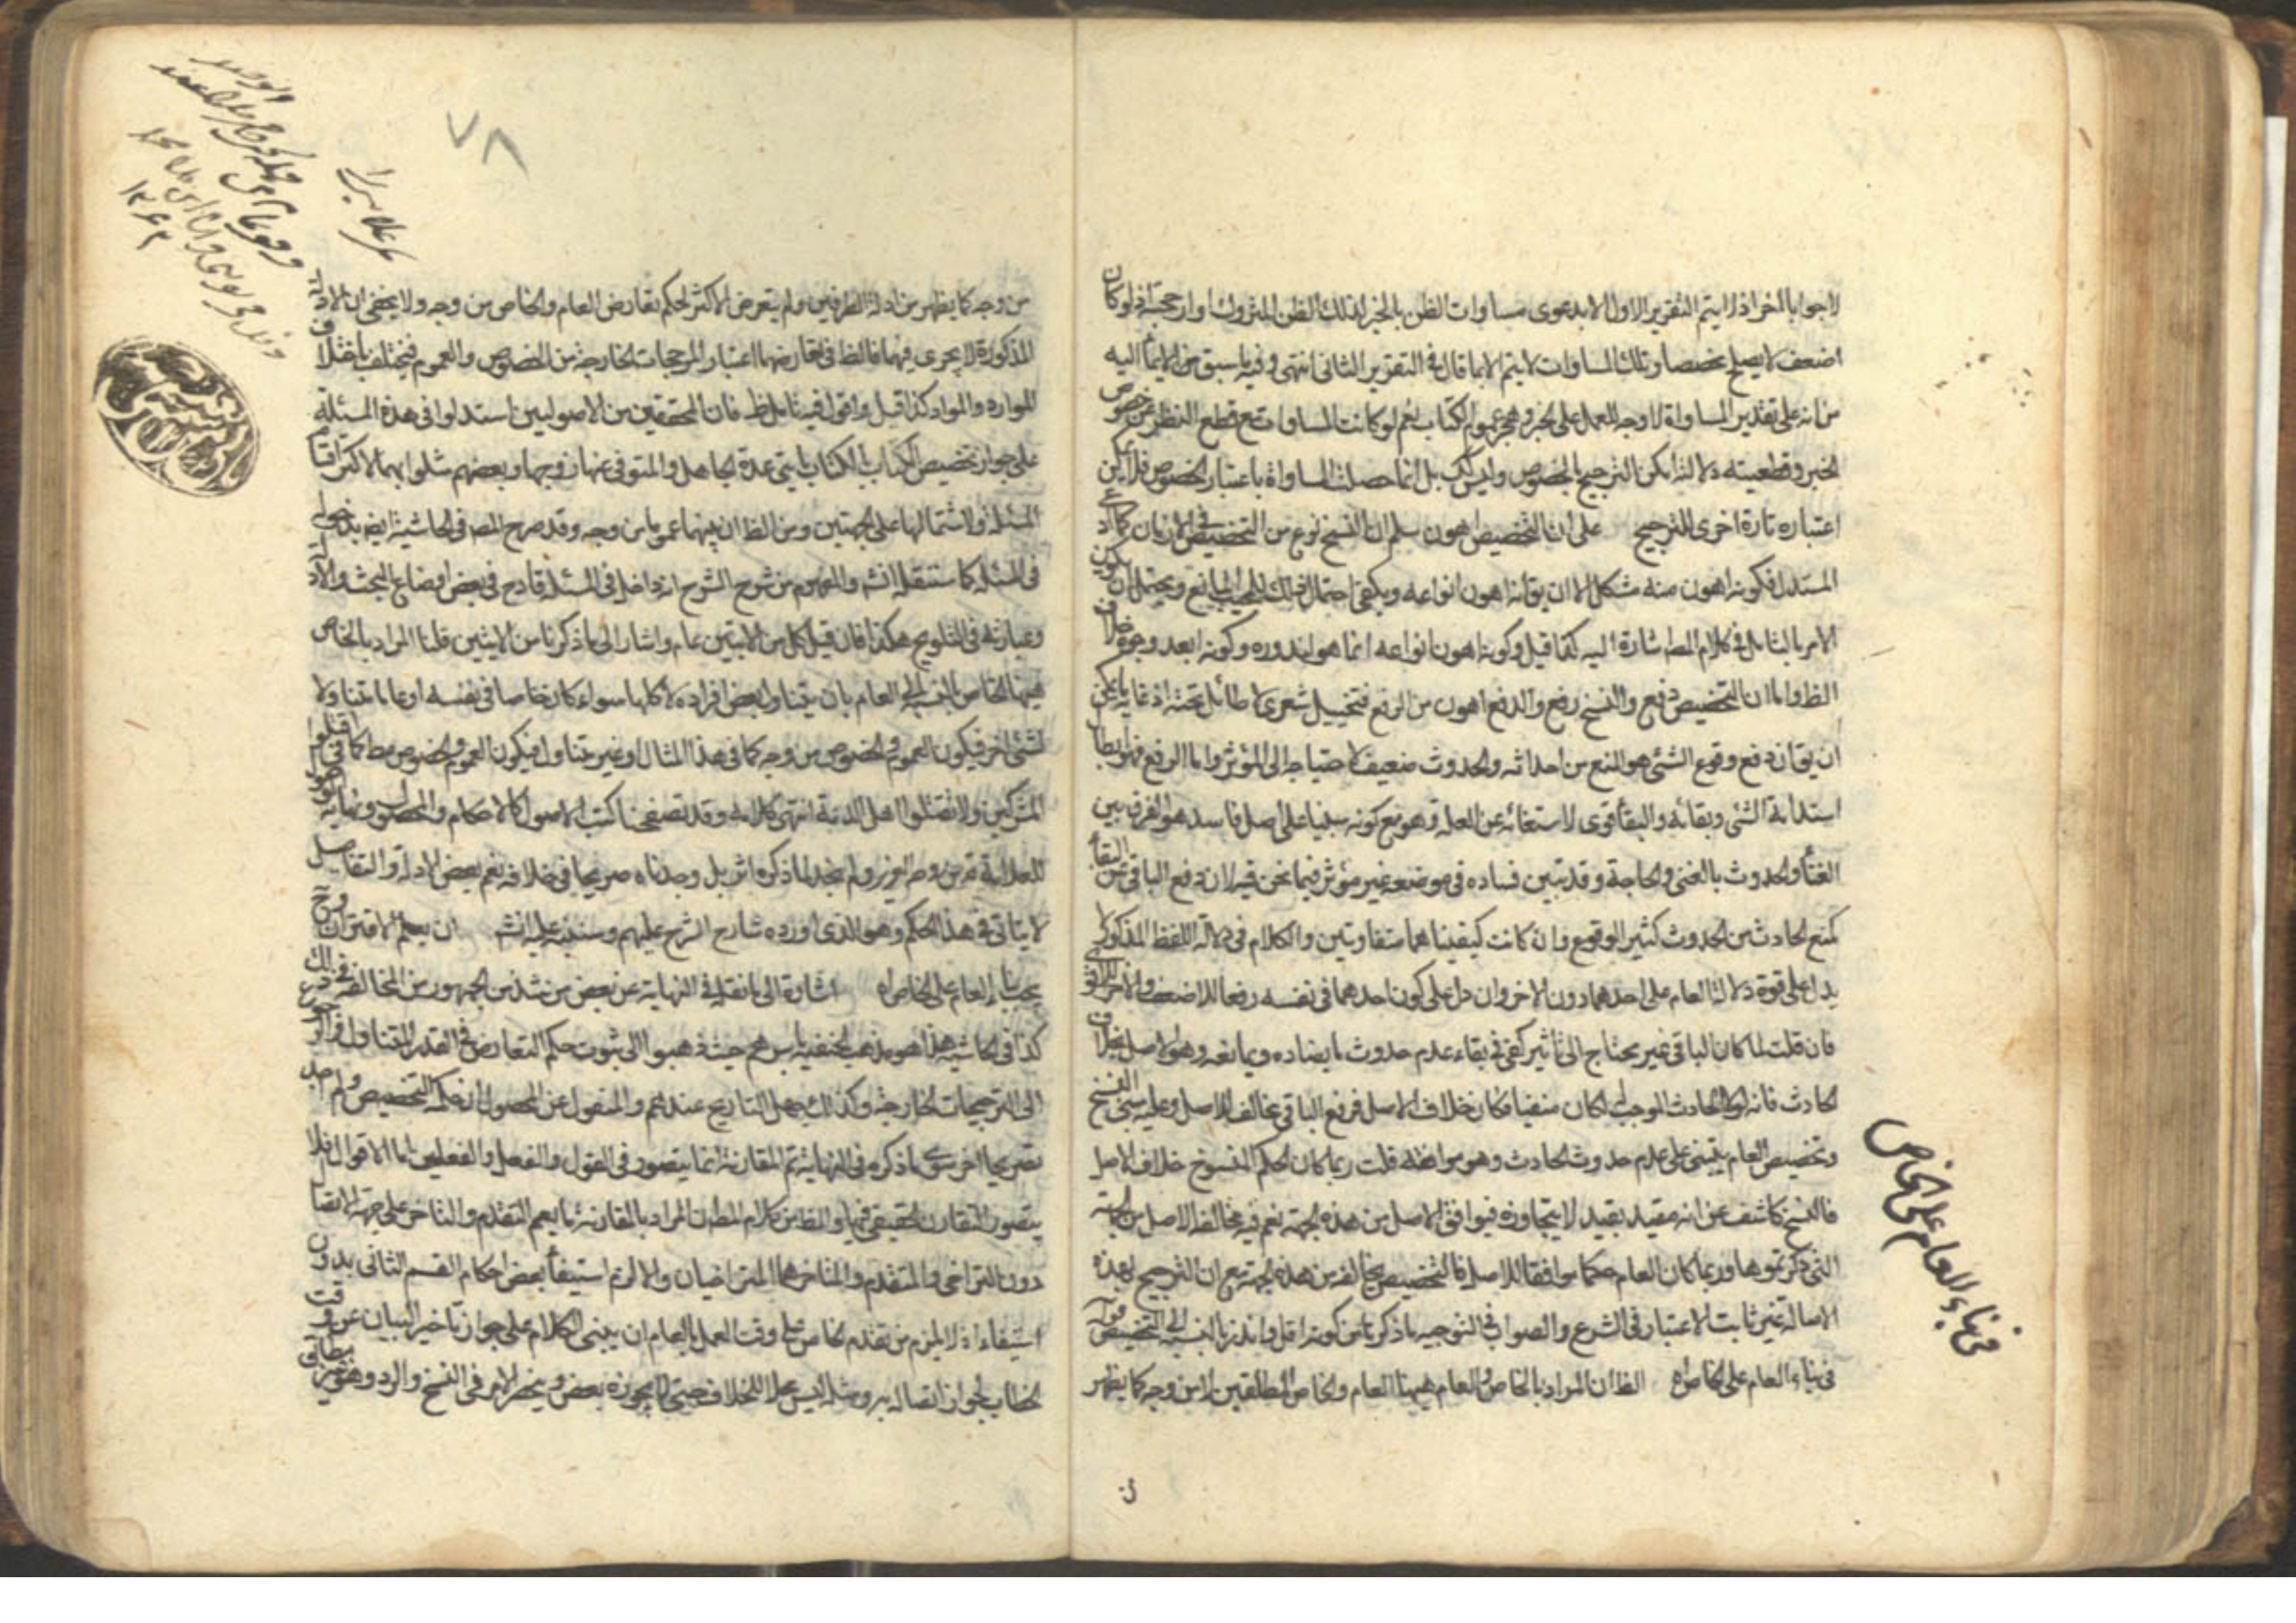 لا جوابا اخر اذ لا يتم التقرير الاول الا بدعوى مساوات الظن بالخبر لذلك الظن المتروك او ارجحيته اذ لو كان
اضعف لا يصلح مخصصا وتلك المساوات لا يتم الا بما قال في التقرير الثانى انتهى وفيه ما سبق من الايماء اليه
من انه على تقدير المساواة لا وجه للعمل على الخبر وهجر عموم الكتاب نعم لو كانت المساوات مع قطع النظر عن خصوص
الخبر وقطعيته دلالته امكن الترجيح بالخصوص وليس كك بل انما حصلت المساواة باعتبار الخصوص فلا يمكن
اعتباره تارة اخرى للترجيح على ان التخصيص اهون سلم ان النسخ نوع من التخصيص في الازمان
المستدل فكونه اهون منه مشكل الا ان يقال انه اهون انواعه ويكفى احتمال ذلك للمجيب المانع ويحتمل ان يكون
الامر بالتامل في كلام المص اشارة اليه كذا قيل وكونه اهون انواعه انما هو لندوره وكونه ابعد وجوه خلاف
الظ واما ان التخصيص دفع والنسخ رفع والدفع اهون من الرفع فتخييل شعرى لا طائل تحته اذ غاية ما يمكن
ان يقال ان دفع وقوع الشئ هو المنع من احداثه والحدوث ضعيف لاحتياجه الى المؤثر واما الرفع فهو ابطال
استدامة الشئ وبقائه والبقاء قوى لاستغنائه عن العلة وهو مع كونه مبنيا على اصل فاسد هو الفرق بين
البقاء والحدوث بالغنى والحاجة وقد تبين فساده في موضعه غير مؤثر فيما نحن فيه لان دفع الباقى عن البقاء
كمنع الحادث من الحدوث كثير الوقوع وان كانت كيفيتاهما متفاوتين والكلام في دلالة اللفظ المذكور لا
يدل على قوة دلالة العام على احدهما دون الاخر وان دل على كون احدهما في نفسه رفعا للاضعف والاخر للاقوى
فان قلت لما كان الباقى غير محتاج الى تأثير كفى في بقاءه عدم حدوث ما يضاده ويمانعه وهو الاصل بخلاف
الحادث فانه لولا الحادث الموجب له لكان منفيا فكان خلاف الاصل فرفع الباقى مخالف للاصل وعليه يبنى النسخ
وتخصيص العام يبتنى على عدم حدوث الحادث وهو موافق له قلت ربما كان الحكم المنسوخ خلاف الاصل
فالنسخ كاشف عن انه مقيد بقيد لا يتجاوزه فيوافق الاصل من هذه الجهة نعم فيه مخالفة الاصل من الجهة
التى ذكرتموها وربما كان العام حكما موافقا للاصل فالتخصيص يخالفه من هذه الجهة مع ان الترجيح بهذه
الاصالة غير ثابت الاعتبار في الشرع والصواب في التوجيه ما ذكرنا من كونه اقل واندر بالنسبة الى التخصيص قوله
في بناء العام على الخاص اه الظ ان المراد بالخاص والعام ههنا العام والخاص المطلقين لا من وجه كما يظهر
في بناء العام على الخاص
٧٨
من وجه كما يظهر من ادلة الطرفين ولم يتعرض الاكثر لحكم تعارض العام والخاص من وجه ولا يخفى ان الادلة
المذكورة لا يجرى فيهما فالظ في تعارضهما اعتبار المرجحات الخارجة من الخصوص والعموم فيختلف باختلاف
الموارد والمواد كذا قيل واقول فيه تامل ظ فان المحققين من الاصوليين استدلوا في هذه المسئلة
على جواز تخصيص الكتاب بالكتاب بايتى عدة الحامل والمتوفى عنها زوجها وبعضهم مثلوا بهما لاكثر اقسام
المسئلة ولاشتمالها على الجهتين ومن الظ ان بينهما عموما من وجه وقد صرح المص في الحاشية ايض بدخوله
في المسئلة كما سننقله انش والمفهوم من شرح الشرح انه داخل في المسئلة قادح في بعض اوضاع البحث والادلة
وعبارته في التلويح هكذا فان قيل كل من الايتين عام واشار الى ما ذكرنا من الايتين قلنا المراد بالخاص
ههنا الخاص بالنسبة الى العام بان يتناول بعض افراده لا كلها سواء كان خاصا في نفسه او عاما متناولا
لشئ اخر فيكون العموم والخصوص من وجه كما في هذا المثال او غير متناول فيكون العموم والخصوص مط كما في اقتلوا
المشركين ولا تقتلوا اهل الذمة انتهى كلامه وقد تصفحنا كتب الاصول كالاحكام والمحصول ونهاية
للعلامة قدس روحه العزيز ولم نجد لما ذكره اثر بل وجدناه صريحا في خلافه نعم بعض الادلة والتفاصيل
لا يتاتى في هذا الحكم وهو الذى اورده شارح الشرح عليهم وسننبه عليه انش ان يعلم الاقتران وح
يجب بناء العام على الخاص اه اشارة الى ما نقله في النهاية عن بعض من شذ من الجمهور من المخالفة في ذلك
كذا في الحاشية هذا هو مذهب الحنفية باسرهم حيث ذهبوا الى ثبوت حكم التعارض في القدر المتناول
الى الترجيحات الخارجة وكذلك جهل التاريخ عندهم والمنقول عن المحصول ان حكمه التخصيص ولم اجد
تصريحا اخر سوى ما ذكره في النهاية ثم المقارنة انما يتصور في القول والفعل والفعلين اما الاقوال فلا
يتصور التقارن الحقيقى فيها والظ من كلام المص ان المراد بالمقارنة ما يعم المتقدم والتاخر على جهة الاتصال
دون التراخى والمتقدم والمتاخر هما المتراخيان والا لزم استيفاء بعض احكام القسم الثانى بدون
استيفاء اذ لا يلزم من تقدم الخاص على وقت العمل بالعام ان يبنى الكلام على جواز تاخير البيان عن وقت
الخطاب لجواز اتصاله به ومثله ليس محلا للخلاف حتى لا يجوزه بعض وينحصر الامر في النسخ والرد وهو غير مطابق